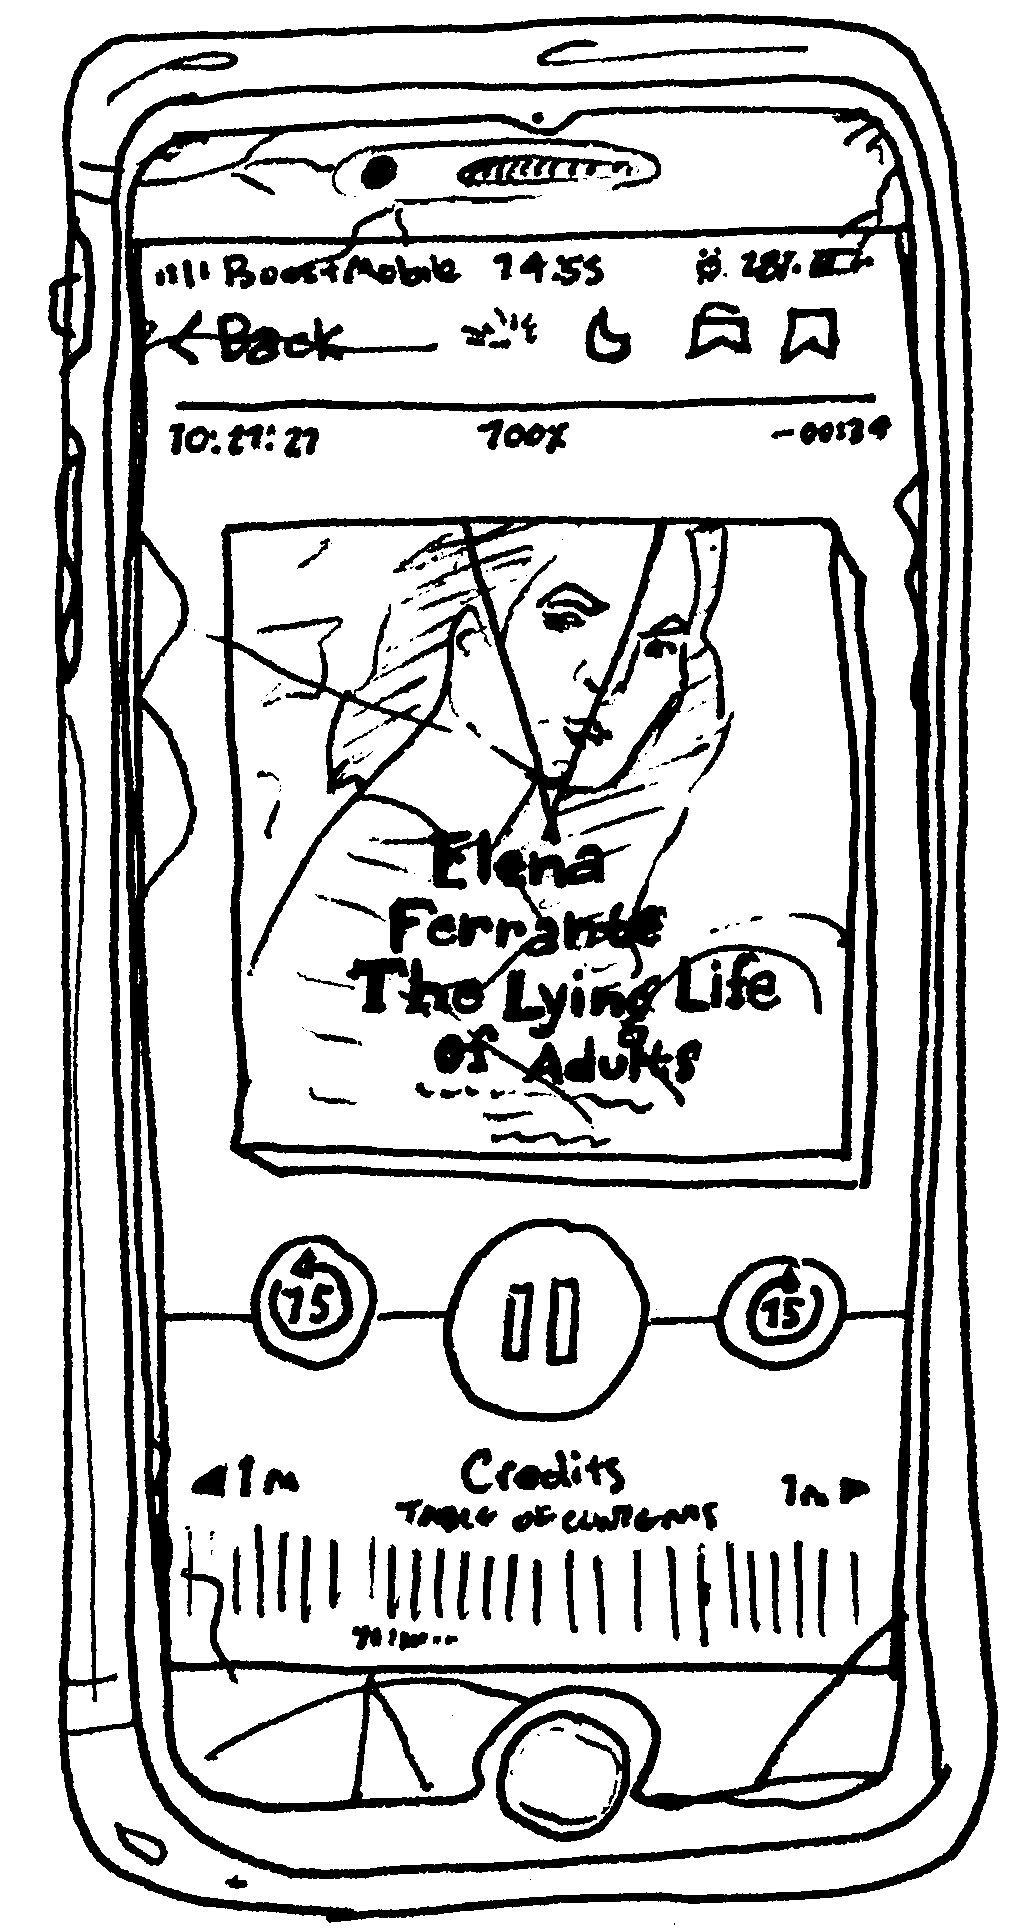 Boost Mobile 14:55 28%
< Back
10:27:27 100% -00:34
Elena
Ferrante
The Lying Life
of Adults
15 15
1m Credits 1m
TABLE OF CONTENTS